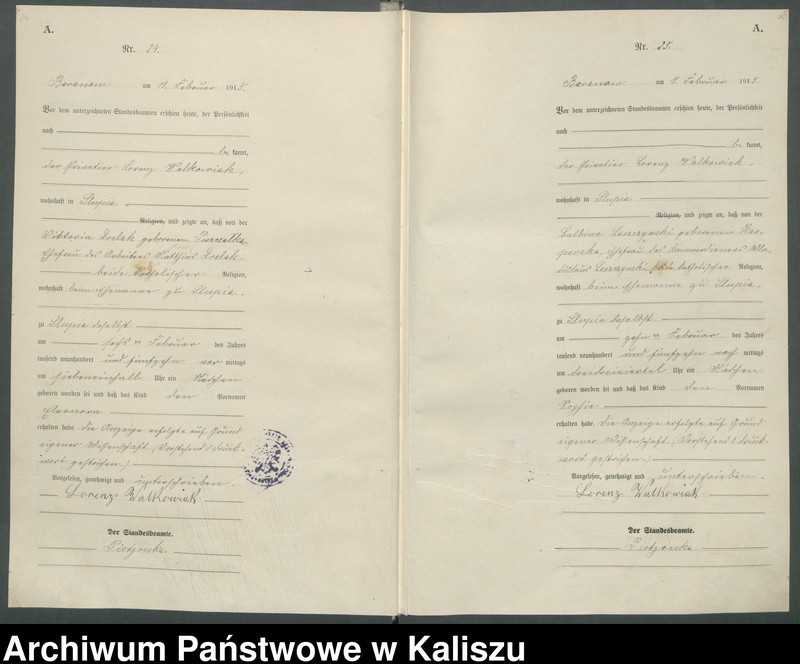 A.
Nr. 24.
am 11. Februar 1915.
Vor dem unterzeichneten Standesbeamten erschien heute, der Persönlichkeit
nach
be kannt,
der Privatier Lorenz Walkowiak,
wohnhaft in Slupia
Religion, und zeigte an, daß von der
Viktoria geborenen
Ehefrau des Arbeiters Mathias
beide katholischer Religion,
wohnhaft beim Ehemanne zu Slupia,
zu Slupia daselbst
am sechs ten Februar des Jahres
tausend neunhundert und fünfzehn vor mittags
um siebeneinhalb Uhr ein Mädchen
geboren worden sei und daß das Kind den Vornamen
Eleonora
erhalten habe. Die Anzeige erfolgte auf Grund
eigener Wissenschaft. (Vorstehend 1 Druck-
wort gestrichen.)
Vorgelesen, genehmigt und unterschrieben.
Lorenz Walkowiak
Der Standesbeamte.
A.
Nr. 25.
am 11. Februar 1915.
Vor dem unterzeichneten Standesbeamten erschien heute, der Persönlichkeit
nach
be kannt,
der Privatier Lorenz Walkowiak,
wohnhaft in Slupia
Religion, und zeigte an, daß von der
Balbina Leszzynski geborenen
Ehefrau des Kammerdieners Wla-
dislaus Leszzynski, beide katholischer Religion,
wohnhaft beim Ehemanne zu Slupia,
zu Slupia daselbst
am zehn ten Februar des Jahres
tausend neunhundert und fünfzehn nach mittags
um dreidreiviertel Uhr ein Mädchen
geboren worden sei und daß das Kind den Vornamen
Sophie
erhalten habe. Die Anzeige erfolgte auf Grund
eigener Wissenschaft. (Vorstehend 1 Druck-
wort gestrichen.)
Vorgelesen, genehmigt und unterschrieben.
Lorenz Walkowiak.
Der Standesbeamte.
Archiwum Państwowe w Kaliszu